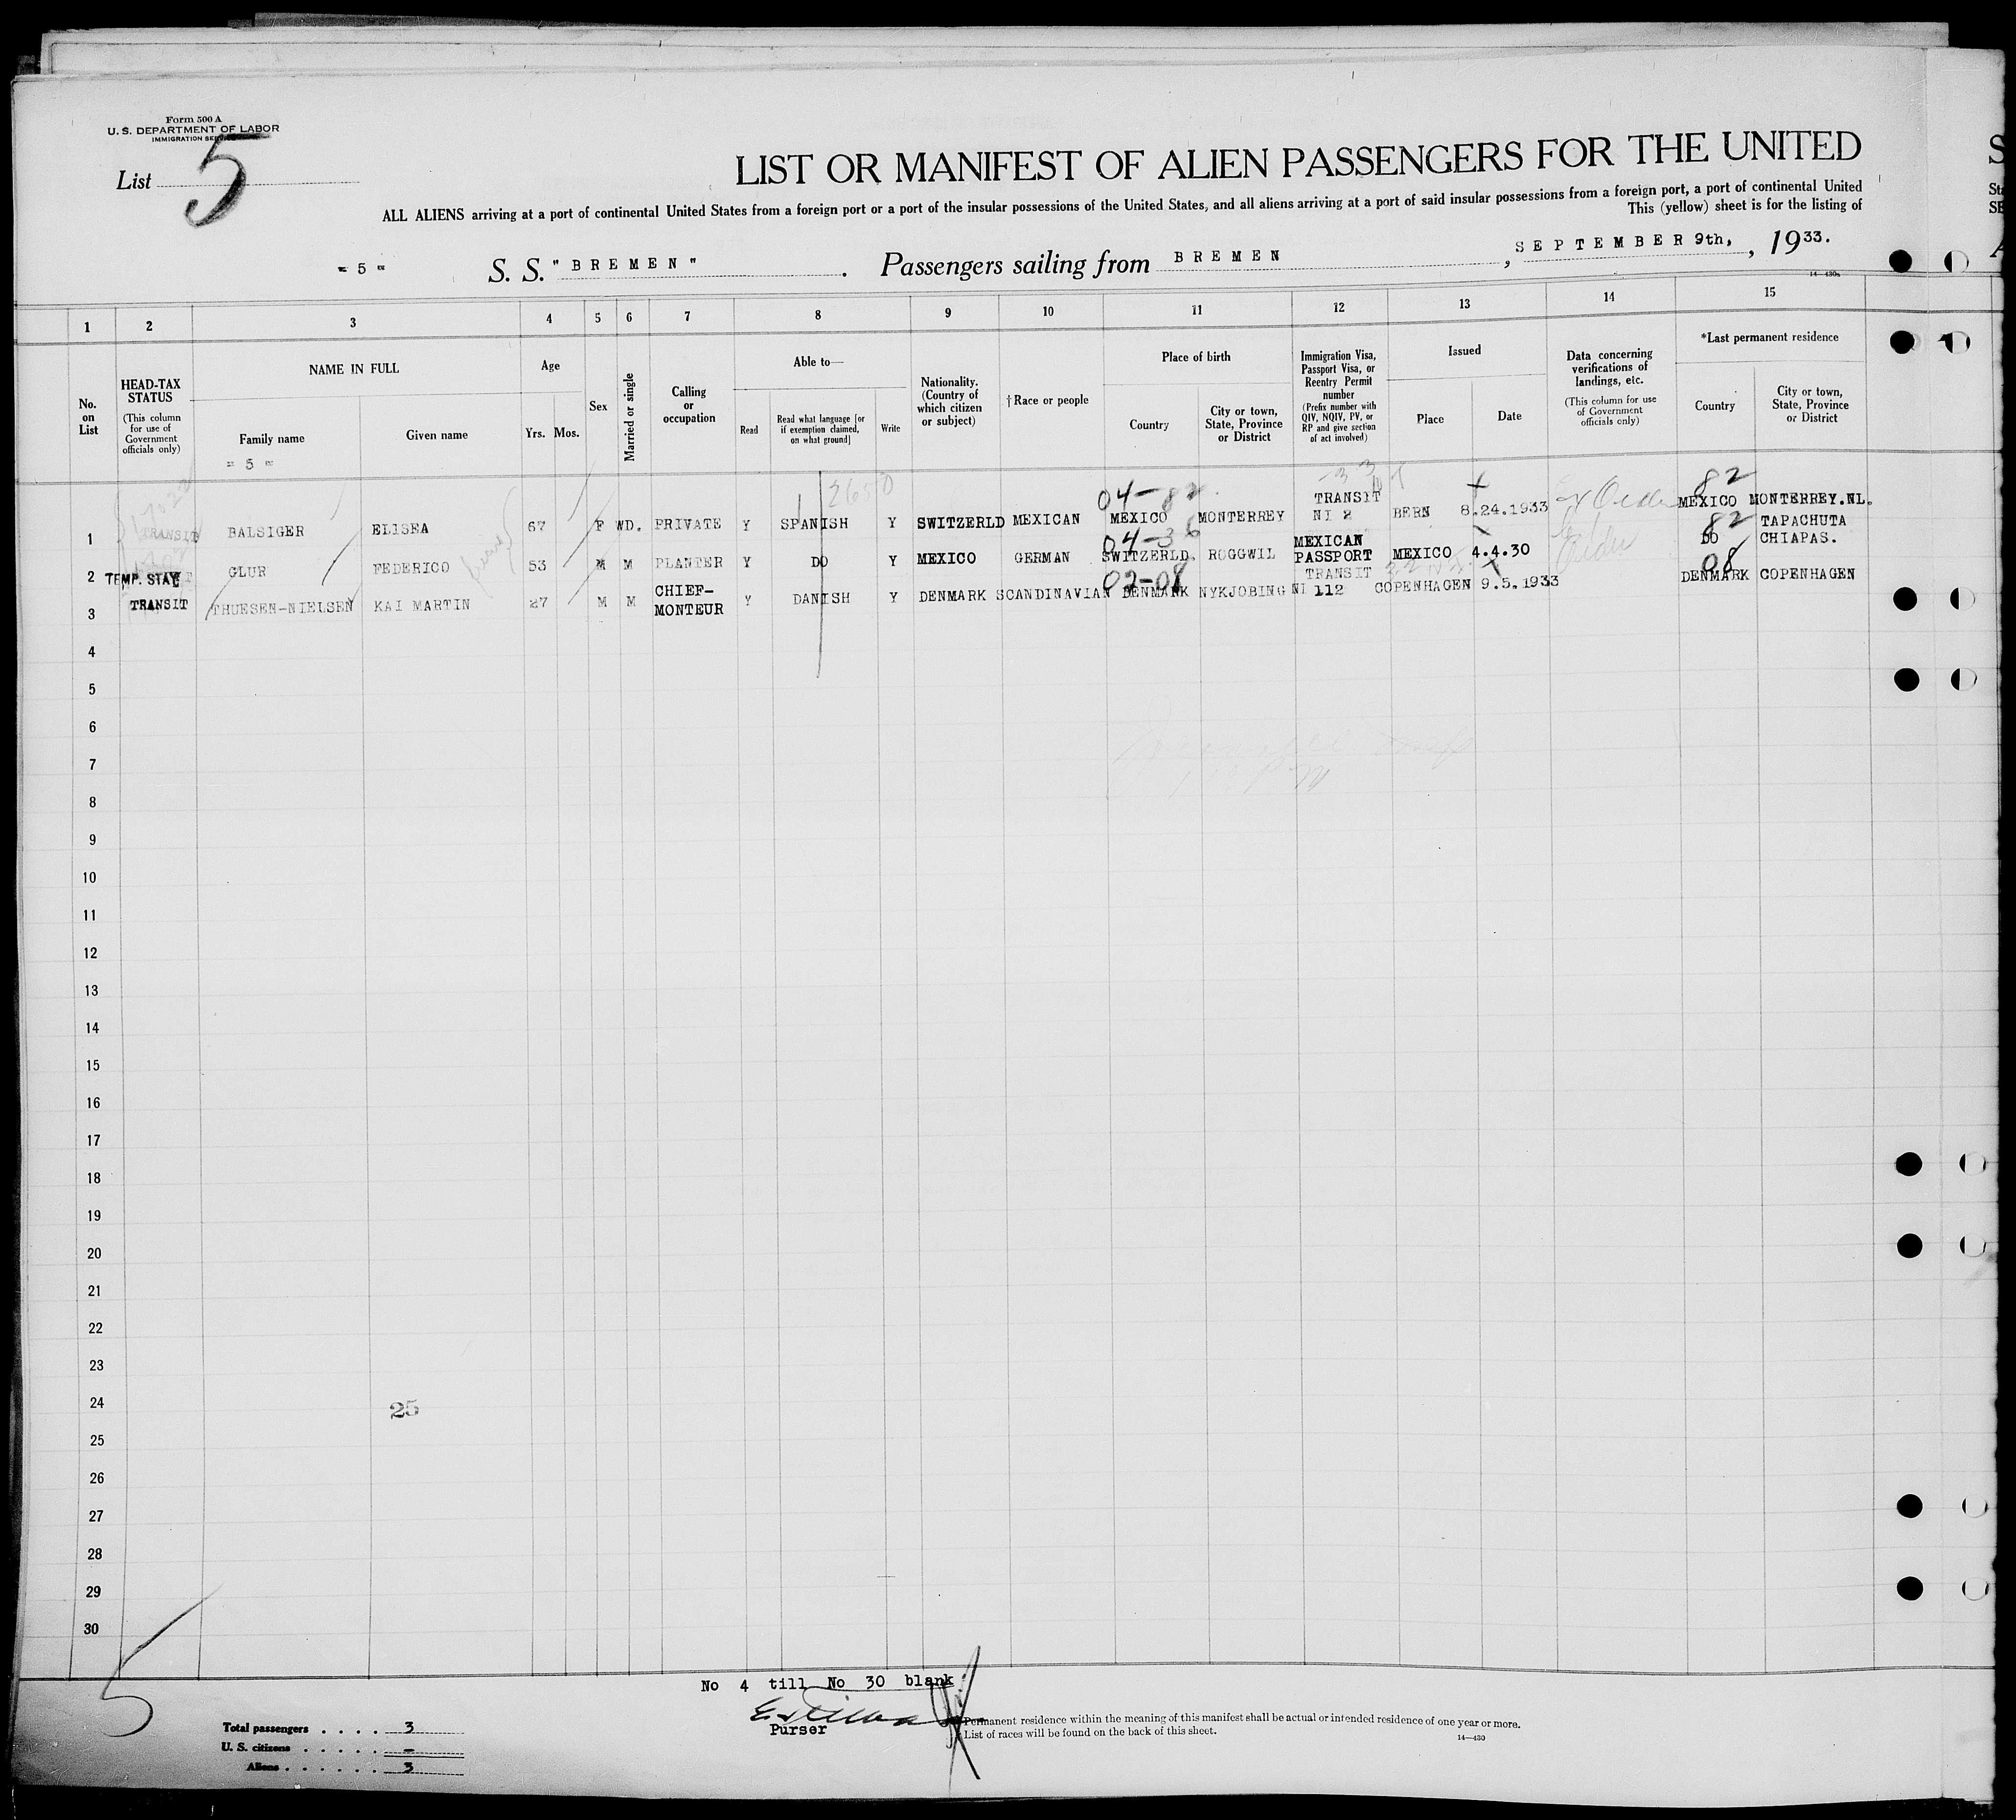 Form 500 A
U. S. DEPARTMENT OF LABOR
IMMIGRATION SERVICE
List 5
LIST OR MANIFEST OF ALIEN PASSENGERS FOR THE UNITED
ALL ALIENS arriving at a port of continental United States from a foreign port or a port of the insular possessions of the United States, and all aliens arriving at a port of said insular possessions from a foreign port, a port of continental United
This (yellow) sheet is for the listing of
= 5 = S. S. "BREMEN" . Passengers sailing from BREMEN , SEPTEMBER 9th, , 1933.
14—430a
1 2 3 4 5 6 7 8 9 10 11 12 13 14 15
No. on List
HEAD-TAX STATUS
(This column for use of Government officials only)
NAME IN FULL
Family name
Given name
= 5 =
Age
Yrs. Mos.
Sex
Married or single
Calling or occupation
Able to—
Read
Read what language [or if exemption claimed, on what ground]
Write
Nationality. (Country of which citizen or subject)
†Race or people
Place of birth
Country
City or town, State, Province or District
Immigration Visa, Passport Visa, or Reentry Permit number
(Prefix number with QIV, NQIV, PV, or RP and give section of act involved)
Issued
Place
Date
Data concerning verifications of landings, etc.
(This column for use of Government officials only)
*Last permanent residence
Country
City or town, State, Province or District
2650
04-82 82
1 TRANSIT BALSIGER ELISEA 67 F WD. PRIVATE Y SPANISH Y SWITZERLD MEXICAN MEXICO MONTERREY TRANSIT NI 2 BERN 8.24.1933 MEXICO MONTERREY.NL.
04-36 82
2 TEMP. STAY GLUR FEDERICO 53 M M PLANTER Y DO Y MEXICO GERMAN SWITZERLD. ROGGWIL MEXICAN PASSPORT MEXICO 4.4.30 DO TAPACHUTA CHIAPAS.
02-08 08
3 TRANSIT THUESEN-NIELSEN KAI MARTIN 27 M M CHIEF-MONTEUR Y DANISH Y DENMARK SCANDINAVIAN DENMARK NYKJOBING TRANSIT NI 112 COPENHAGEN 9.5.1933 DENMARK COPENHAGEN
4
5
6
7
8
9
10
11
12
13
14
15
16
17
18
19
20
21
22
23
24
25
25
26
27
28
29
30
5
No 4 till No 30 blank
Purser
Total passengers . . . . 3
U. S. citizens . . . . . —
Aliens . . . . . . 3
Permanent residence within the meaning of this manifest shall be actual or intended residence of one year or more.
List of races will be found on the back of this sheet.
14—430